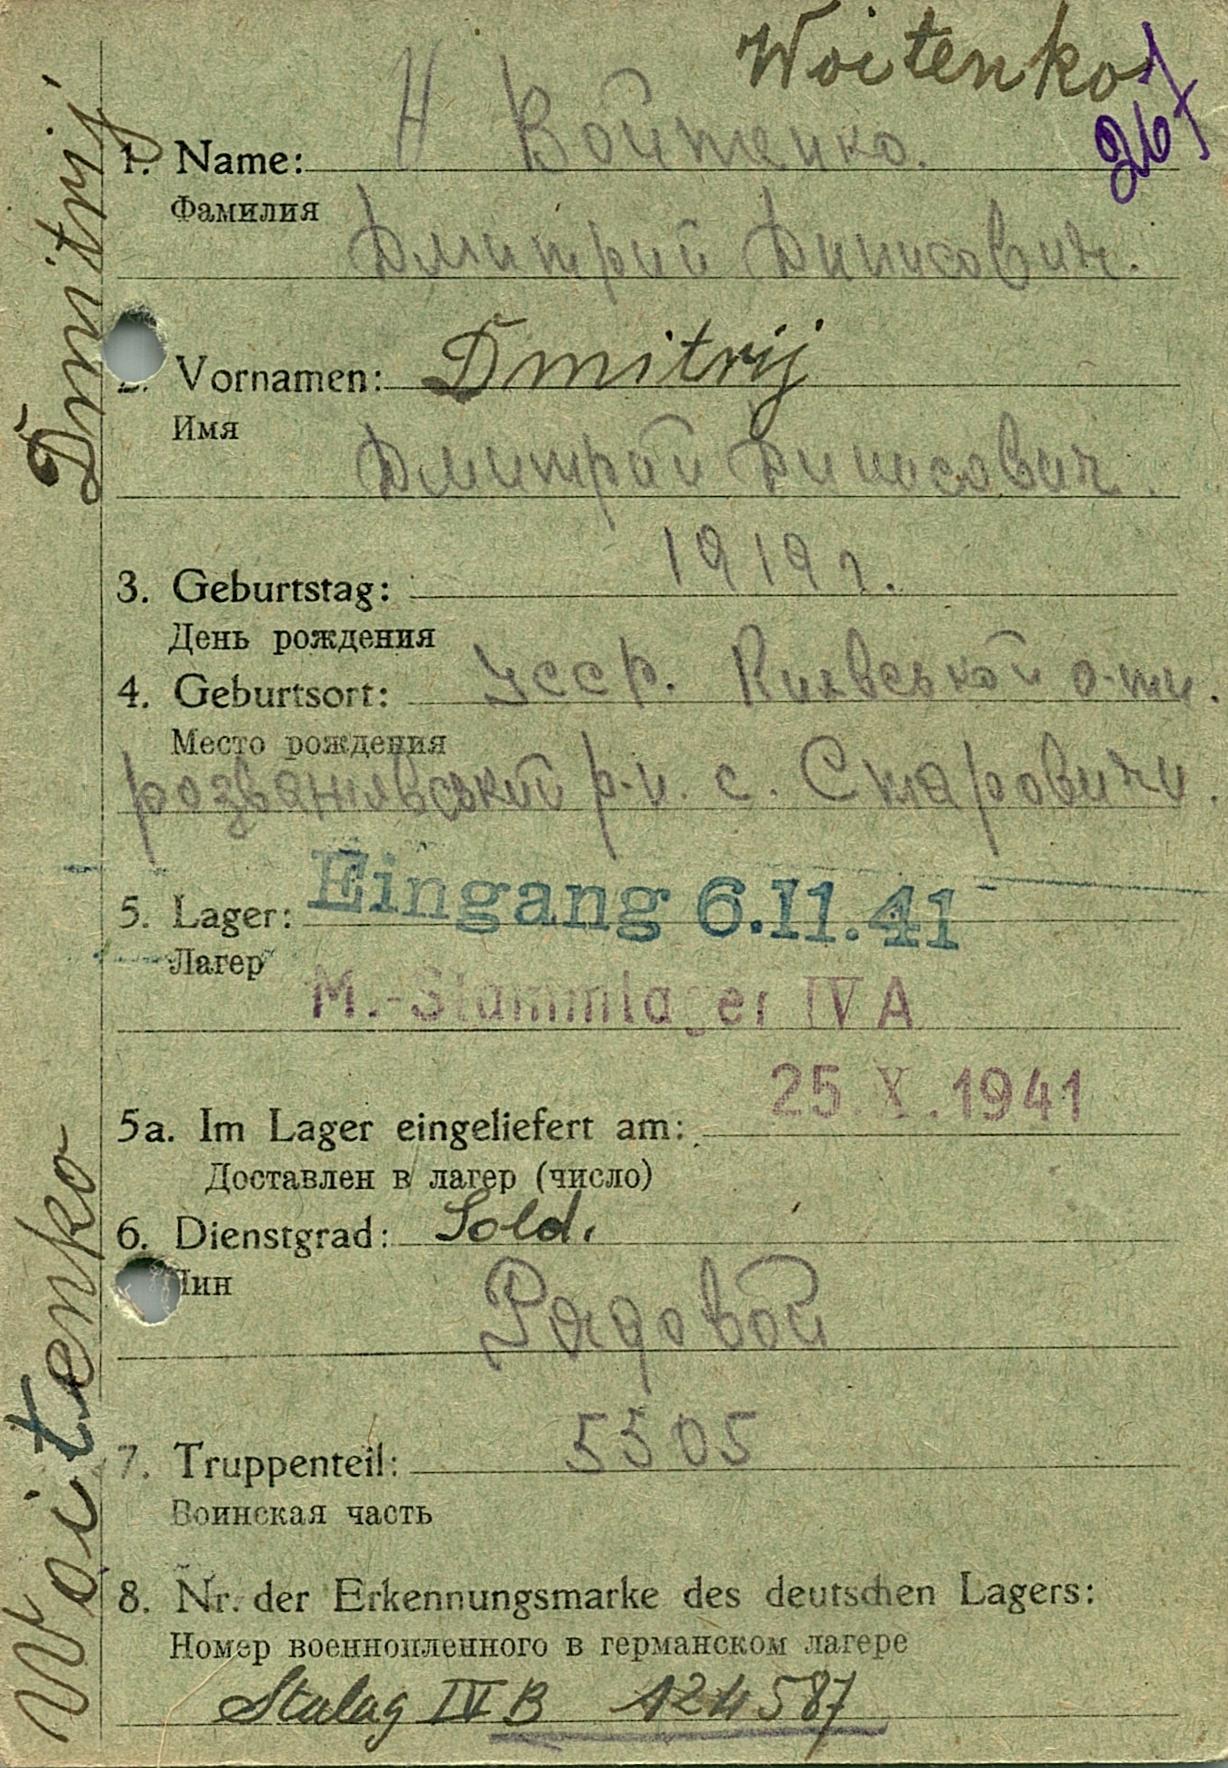 Woitenko
267
1. Name: Н Войтенко.
Фамилия
Дмитрий Динисович.
2. Vornamen: Dmitrij
Имя
Дмитрий Динисович.
3. Geburtstag: 1919 г.
День рождения
4. Geburtsort: Усср. Киявськой о-ти.
Место рождения
розважявський р-н. с. Старовичи.
5. Lager: Eingang 6.11.41
Лагер
M.-Stammlager IV A
25. X. 1941
5a. Im Lager eingeliefert am:
Доставлен в лагер (число)
6. Dienstgrad: Sold.
Чин
Рядовой
7. Truppenteil: 5505
Воинская часть
8. Nr. der Erkennungsmarke des deutschen Lagers:
Номер военнопленного в германском лагере
Stalag IV B 124587
Woitenko Dmitrij